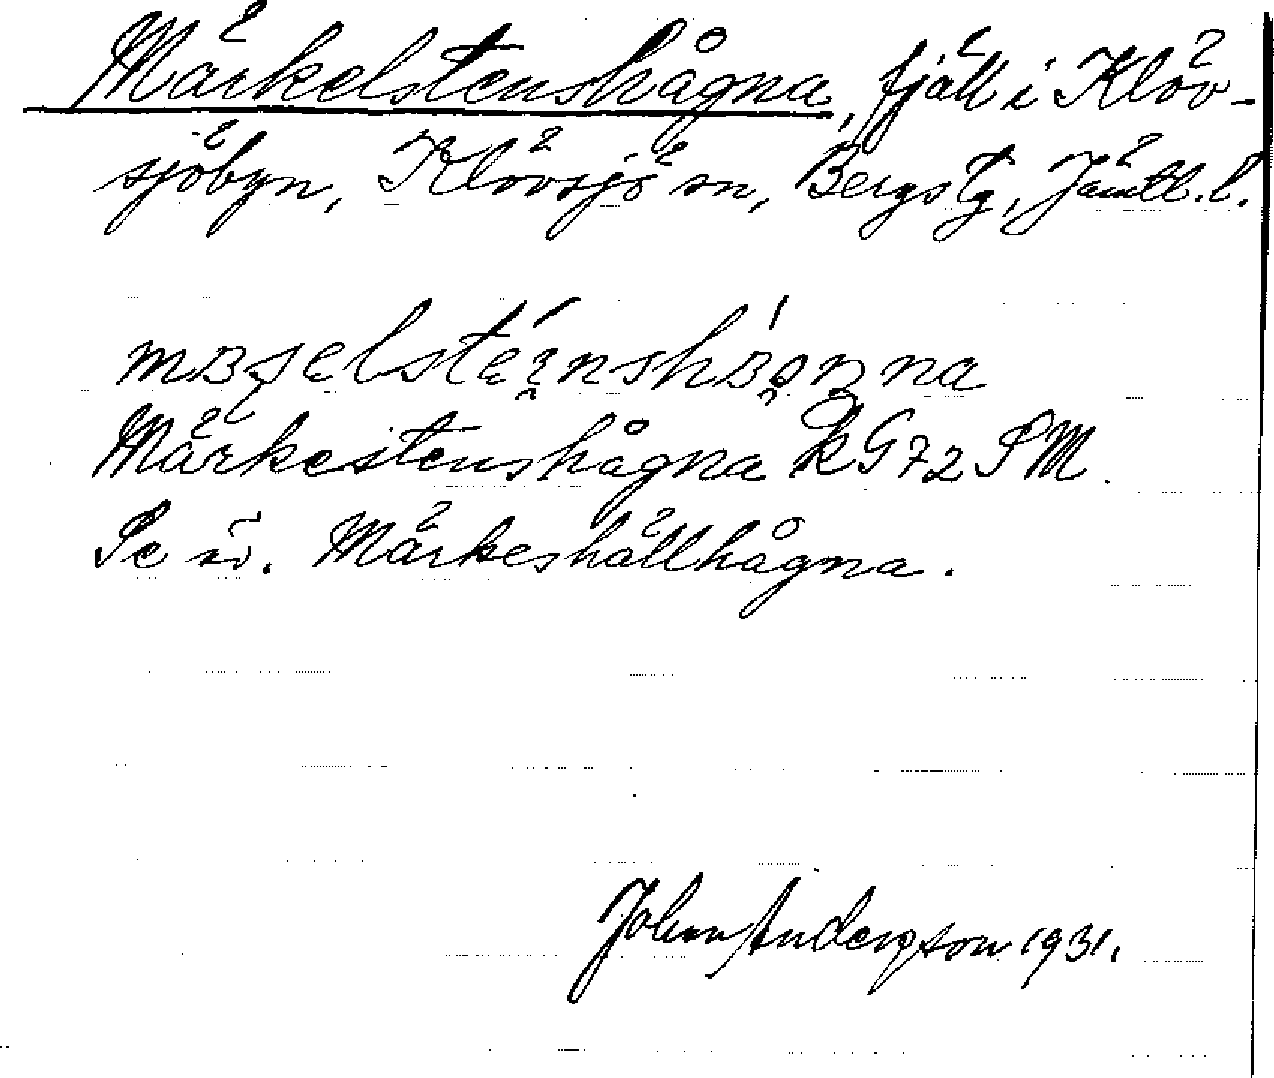 Märkelstenshågna, fjäll i Klöv-
sjöbyn, Klövsjö sn, Bergs tg, Jämtl. l.
Märkestenshågna RG72 SM.
Se äv. Märkeshällhågna.
John Anderson 1931.